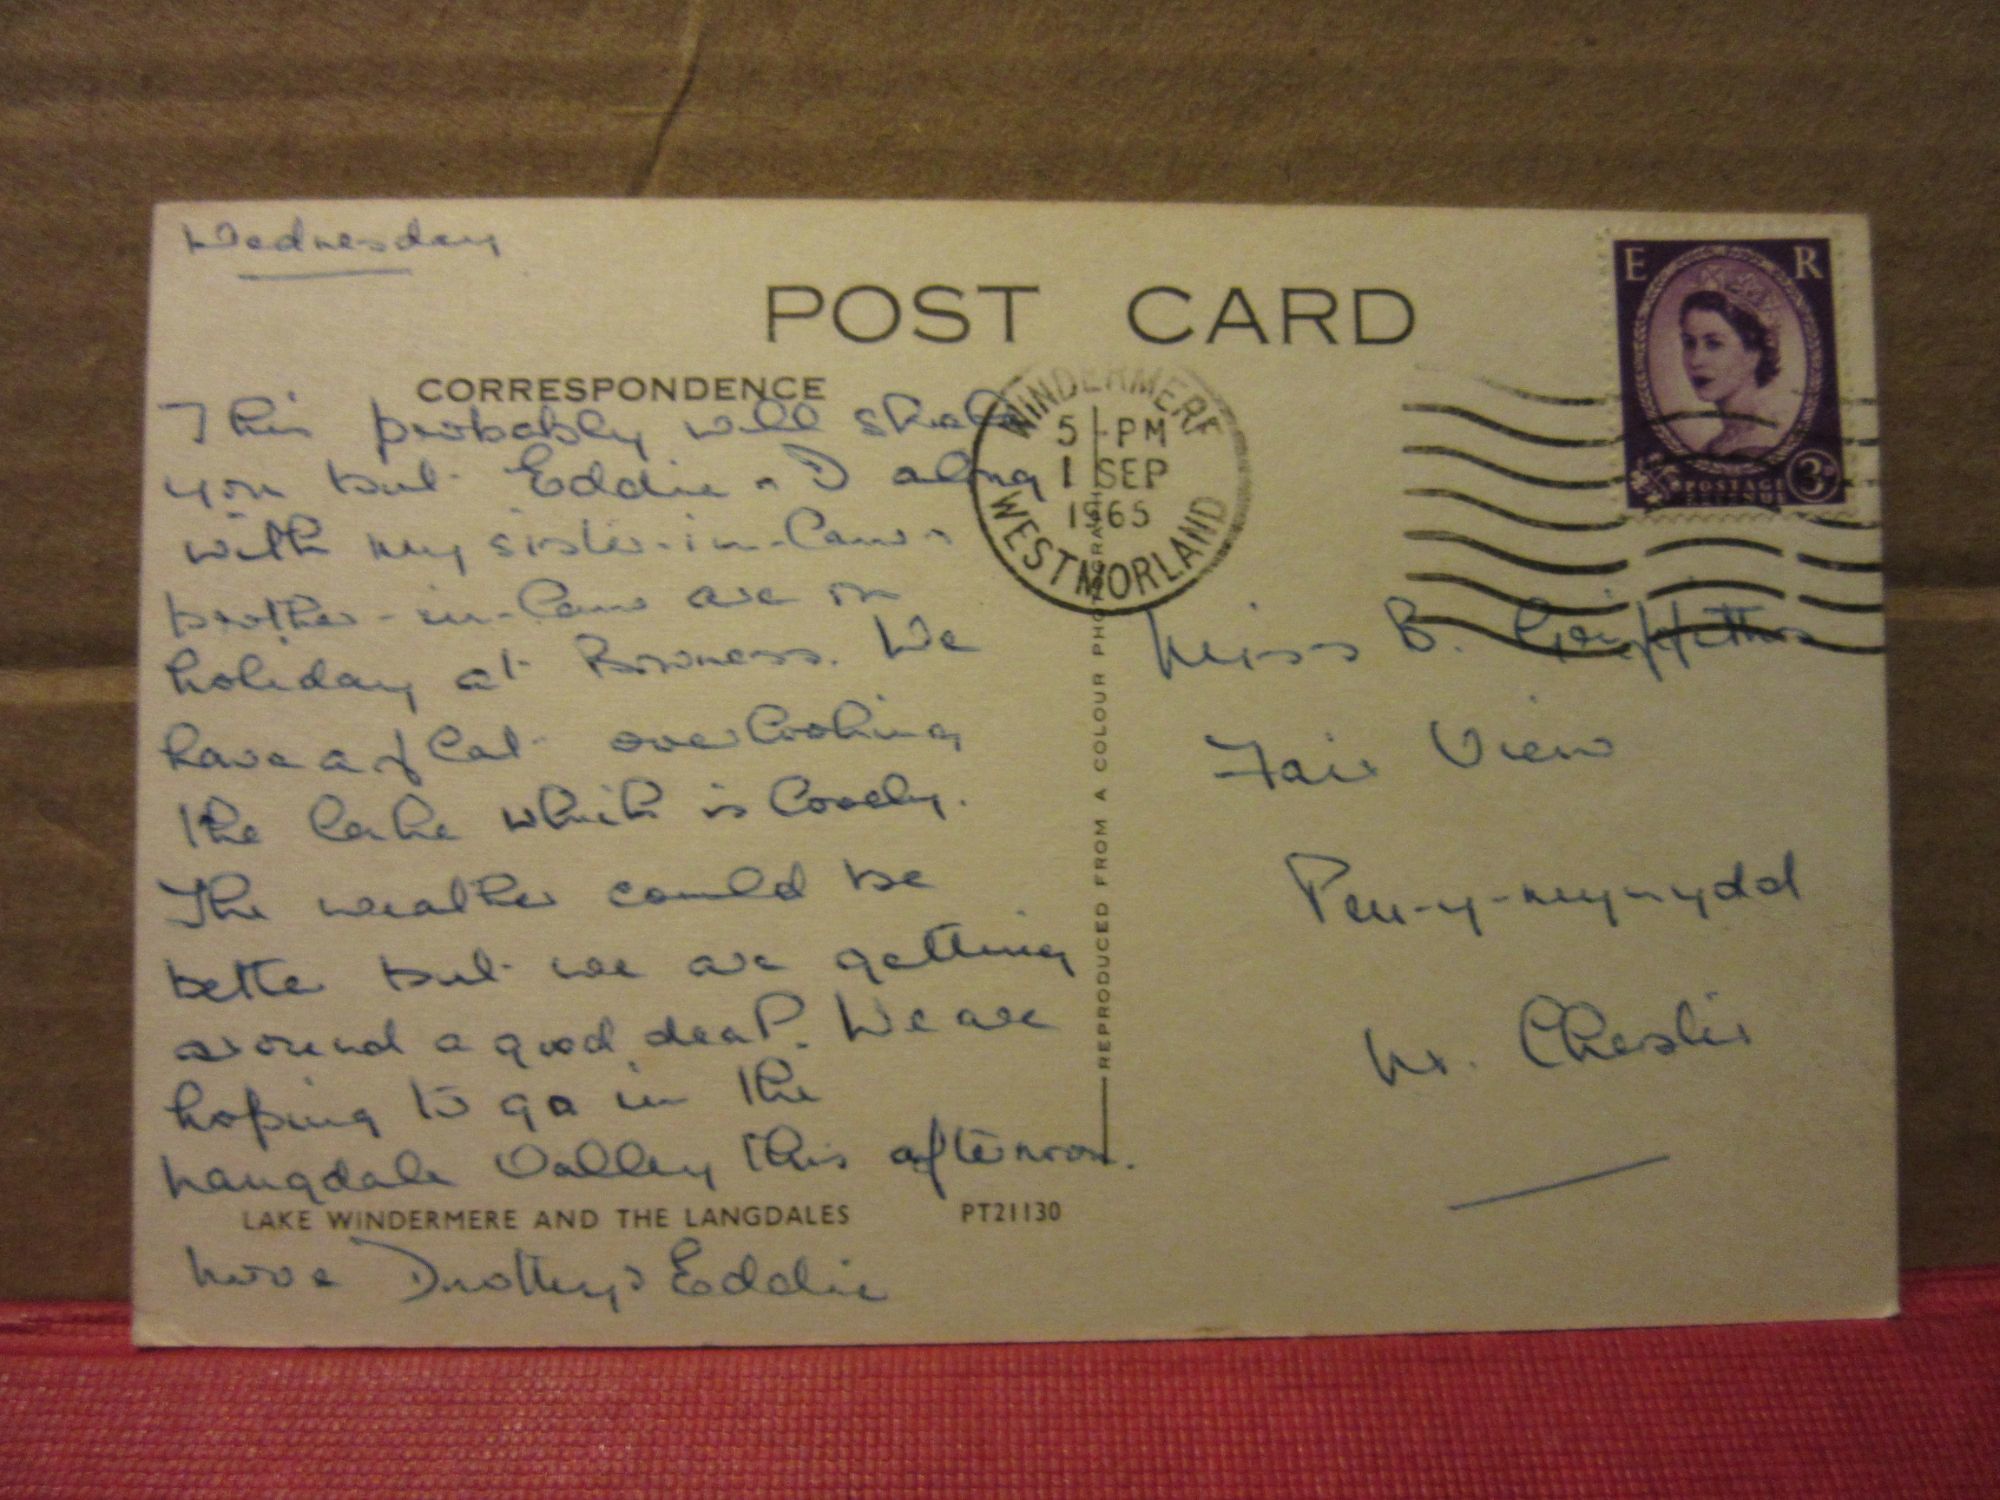 Wednesday
POST CARD
CORRESPONDENCE
This probably will shake
you but Eddie & I along
with my sister-in-law &
brother-in-law are on
holiday at Bowness. We
have a flat overlooking
the lake which is lovely.
The weather could be
better but we are getting
around a good deal. We are
hoping to go in the
Langdale Valley this afternoon.
LAKE WINDERMERE AND THE LANGDALES PT21130
Love Dorothy & Eddie
REPRODUCED FROM A COLOUR PHOTOGRAPH
WINDERMERE
5 - PM
1 SEP
1965
WESTMORLAND
E R
POSTAGE
REVENUE
3D
Miss B. Griffiths
Fair View
Pen-y-mynydd
Nr. Chester